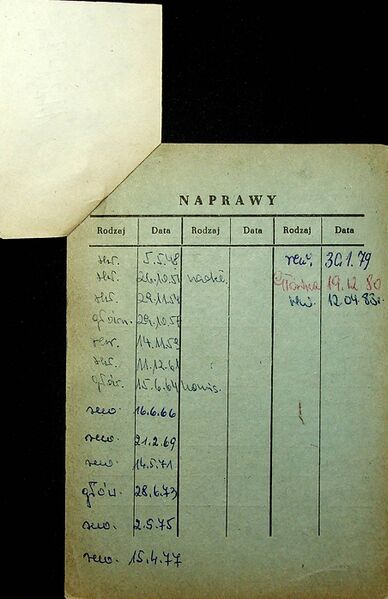 NAPRAWY
Rodzaj Data Rodzaj Data Rodzaj Data
5.5.48
29.11.54
główn. 29.10.57
rew. 14.11.59
11.12.61
głów. 15.6.64
rew. 16.6.66
rew. 21.2.69
rew. 14.5.71
głów. 28.6.73
rew. 2.9.75
rew. 15.4.77
rew. 30.1.79
Główna 19.12.80
rew. 12.04.83